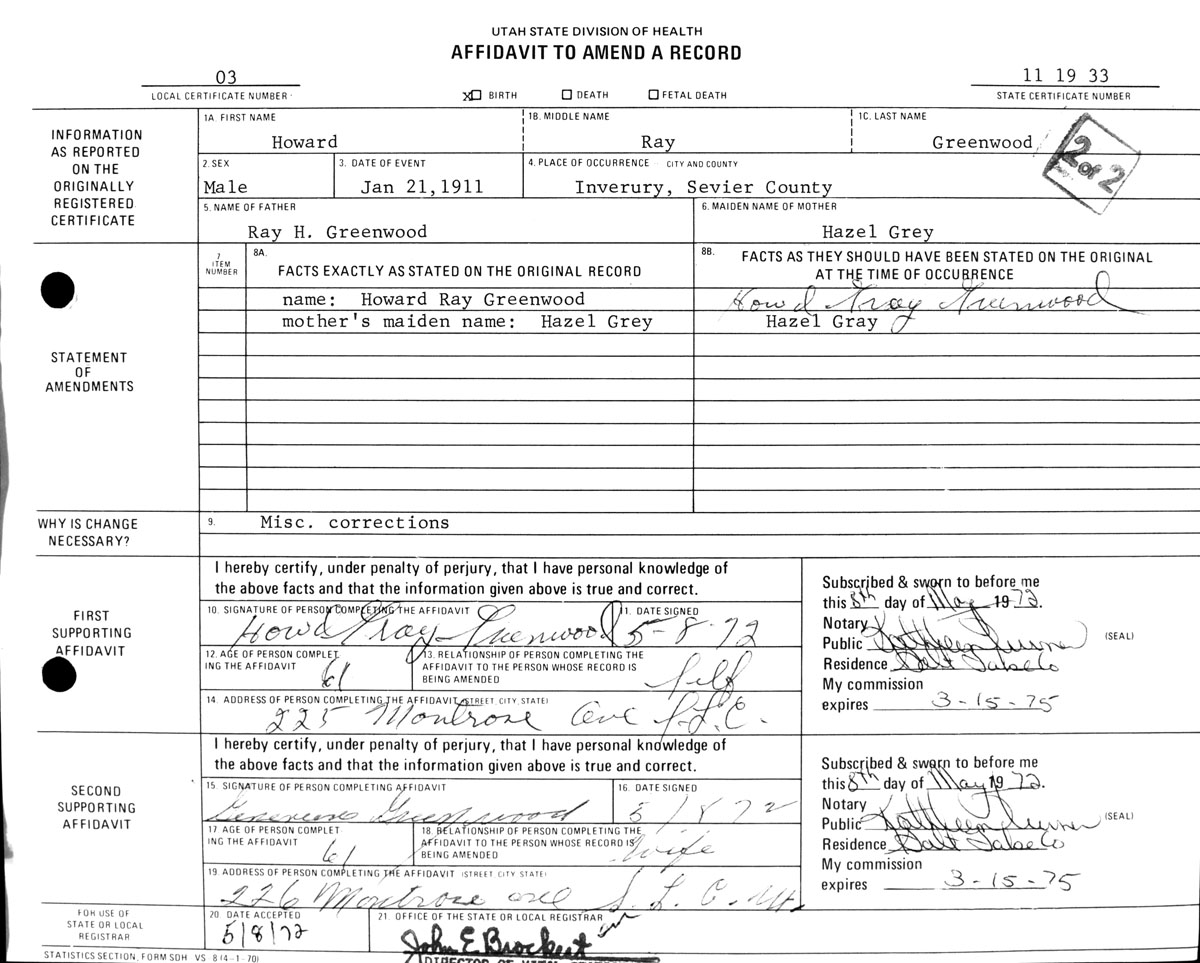 UTAH STATE DIVISION OF HEALTH
AFFIDAVIT TO AMEND A RECORD
03
LOCAL CERTIFICATE NUMBER
X BIRTH DEATH FETAL DEATH
11 19 33
STATE CERTIFICATE NUMBER
2 of 2
INFORMATION
AS REPORTED
ON THE
ORIGINALLY
REGISTERED
CERTIFICATE
1A FIRST NAME 1B. MIDDLE NAME 1C. LAST NAME
Howard Ray Greenwood
2. SEX 3. DATE OF EVENT 4. PLACE OF OCCURRENCE CITY AND COUNTY
Male Jan 21,1911 Inverury, Sevier County
5. NAME OF FATHER 6. MAIDEN NAME OF MOTHER
Ray H. Greenwood Hazel Grey
STATEMENT
OF
AMENDMENTS
7
ITEM
NUMBER
8A.
FACTS EXACTLY AS STATED ON THE ORIGINAL RECORD
8B. FACTS AS THEY SHOULD HAVE BEEN STATED ON THE ORIGINAL
AT THE TIME OF OCCURRENCE
name: Howard Ray Greenwood Howd Gray Greenwood
mother's maiden name: Hazel Grey Hazel Gray
WHY IS CHANGE
NECESSARY?
9. Misc. corrections
FIRST
SUPPORTING
AFFIDAVIT
I hereby certify, under penalty of perjury, that I have personal knowledge of
the above facts and that the information given above is true and correct.
10. SIGNATURE OF PERSON COMPLETING THE AFFIDAVIT 11. DATE SIGNED
Howd Gray Greenwood 5-8-72
12. AGE OF PERSON COMPLET
ING THE AFFIDAVIT
61
13. RELATIONSHIP OF PERSON COMPLETING THE
AFFIDAVIT TO THE PERSON WHOSE RECORD IS
BEING AMENDED
Self
14. ADDRESS OF PERSON COMPLETING THE AFFIDAVIT (STREET, CITY, STATE)
225 Montrose Ave S.L.C.
Subscribed & sworn to before me
this 8th day of May 1972.
Notary
Public Kathleen
(SEAL)
Residence Salt Lake Co
My commission
expires 3-15-75
SECOND
SUPPORTING
AFFIDAVIT
I hereby certify, under penalty of perjury, that I have personal knowledge of
the above facts and that the information given above is true and correct.
15. SIGNATURE OF PERSON COMPLETING AFFIDAVIT 16. DATE SIGNED
Greenwood 5/8 72
17. AGE OF PERSON COMPLET
ING THE AFFIDAVIT
61
18. RELATIONSHIP OF PERSON COMPLETING THE
AFFIDAVIT TO THE PERSON WHOSE RECORD IS
BEING AMENDED
Wife
19. ADDRESS OF PERSON COMPLETING THE AFFIDAVIT (STREET, CITY, STATE)
226 Montrose ave S. L. C. Ut
Subscribed & sworn to before me
this 8th day of May 1972.
Notary
Public Kathleen
(SEAL)
Residence Salt Lake Co
My commission
expires 3-15-75
FOR USE OF
STATE OR LOCAL
REGISTRAR
20. DATE ACCEPTED 21. OFFICE OF THE STATE OR LOCAL REGISTRAR
5/8/72 John E Brockert
DIRECTOR OF
STATISTICS SECTION, FORM SDH VS-8 (4-1-70)